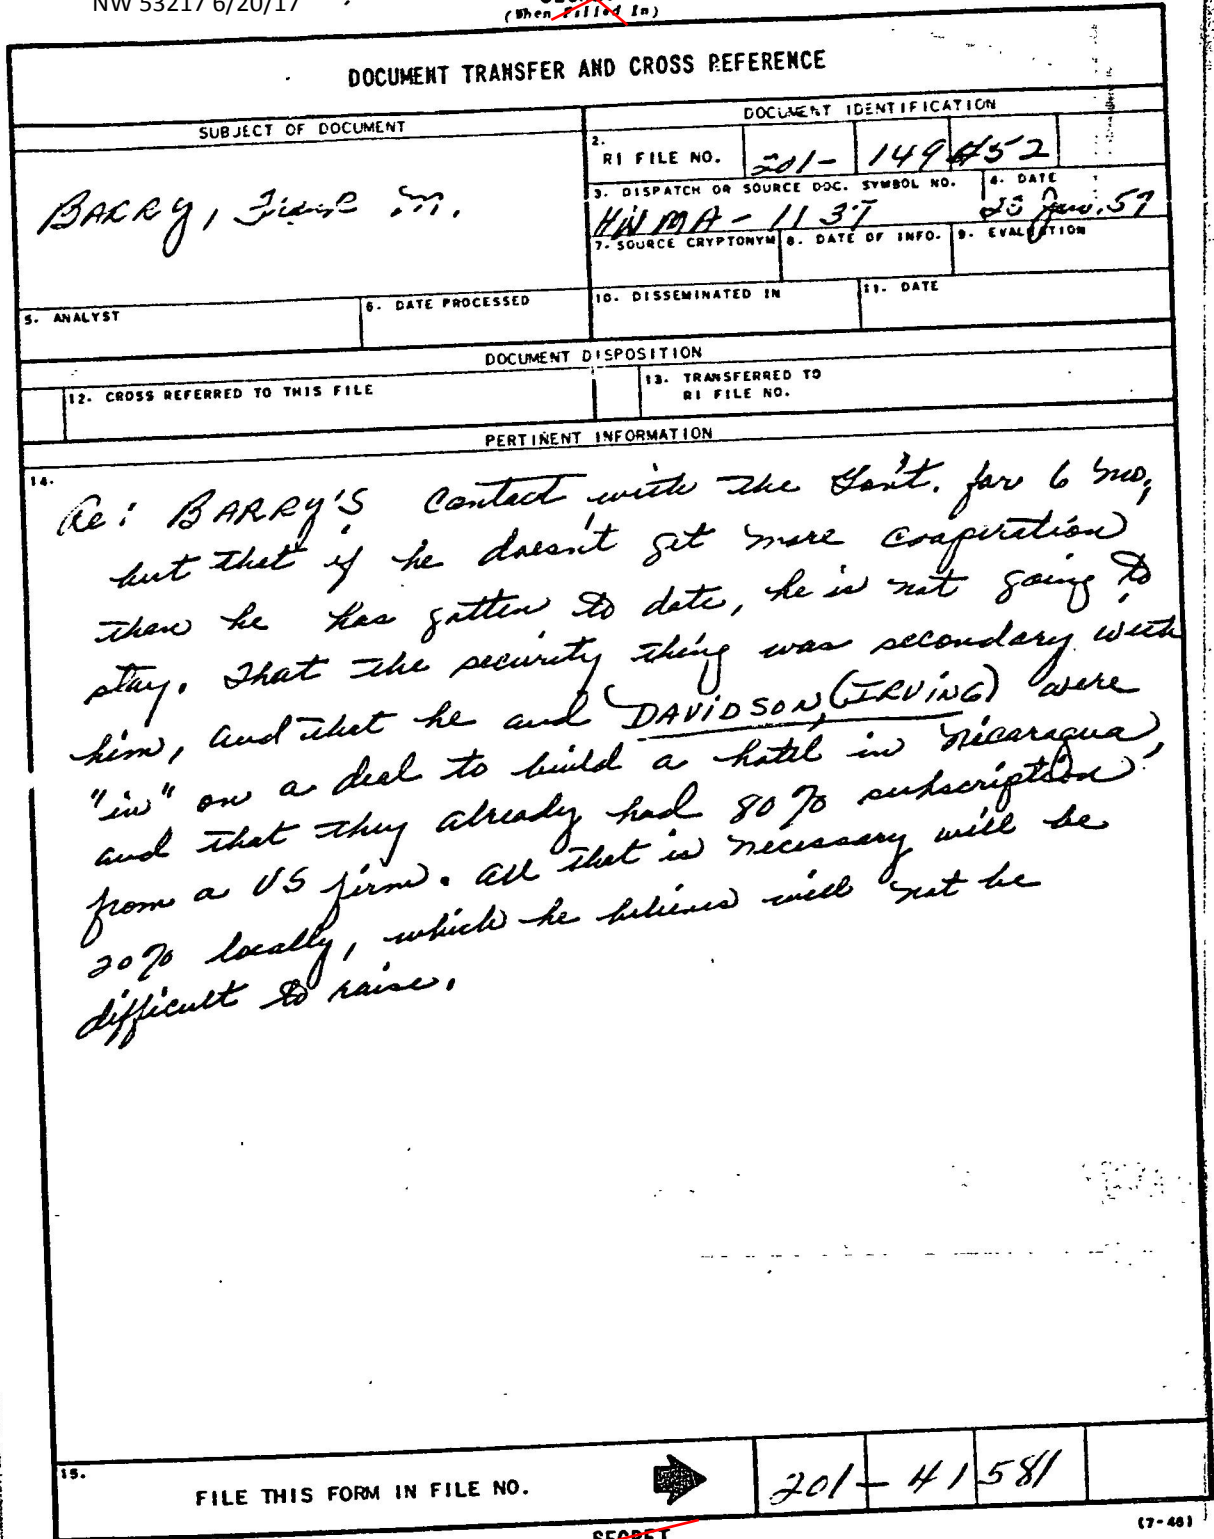 NW 53217 6/20/17
(When Filled In)
DOCUMENT TRANSFER AND CROSS REFERENCE
SUBJECT OF DOCUMENT
DOCUMENT IDENTIFICATION
BARRY, M.
2. RI FILE NO. 201- 149 52
3. DISPATCH OR SOURCE DOC. SYMBOL NO.
HNMA - 1137
4. DATE
Jan. 57
7. SOURCE CRYPTONYM
8. DATE OF INFO.
9. EVALUATION
5. ANALYST
6. DATE PROCESSED
10. DISSEMINATED IN
11. DATE
DOCUMENT DISPOSITION
12. CROSS REFERRED TO THIS FILE
13. TRANSFERRED TO
RI FILE NO.
PERTINENT INFORMATION
14.
Re: BARRY'S contact with the Gov't. for 6 mo,
but that if he doesn't get more cooperation
than he has gotten to date, he is not going to
stay. That the security thing was secondary with
him, and that he and DAVIDSON, (IRVING) were
"in" on a deal to build a hotel in Nicaragua,
and that they already had 80% subscription
from a US firm. All that is necessary will be
20% locally, which he believes will not be
difficult to raise.
15.
FILE THIS FORM IN FILE NO.
201 - 41 581
SECRET
(7-46)